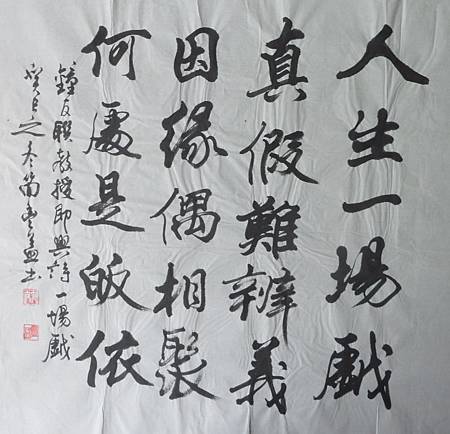 人生一場戲
真假難辨義
因緣偶相聚
何處是皈依
鐘友聯教授即興詩一場戲
癸巳之冬